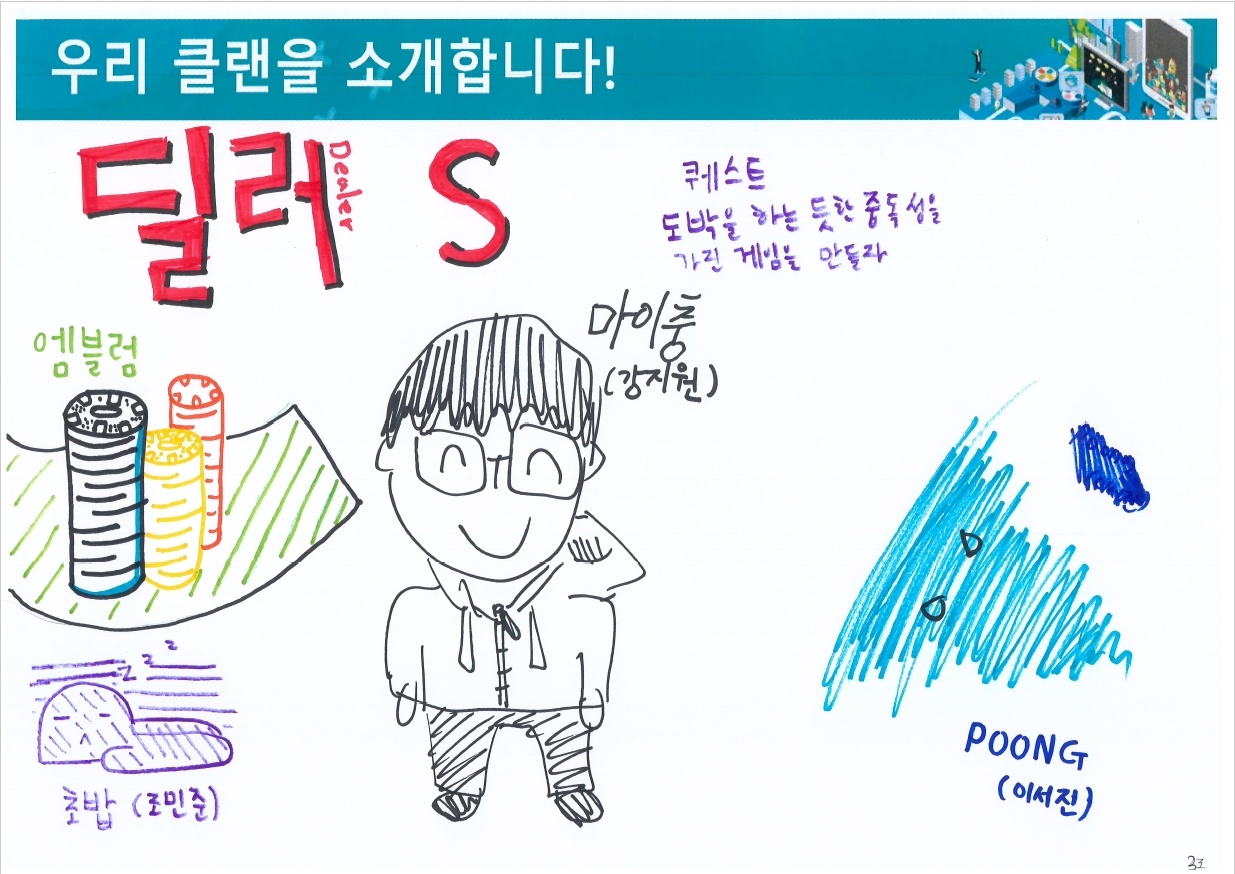 우리 클랜을 소개합니다!
딜러 S
Dealer
퀘스트
도박을 하는 듯한 중독성을
가진 게임을 만들라
엠블럼
마이충
(강지원)
z z z
초밥 (조민준)
POONG
(이서진)